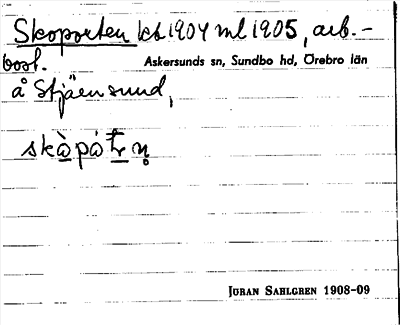 Skoporten kt 1904 ml 1905, arb.-
bost. Askersunds sn, Sundbo hd, Örebro län
å Stjäensund,
skòpó
Jöran Sahlgren 1908-09